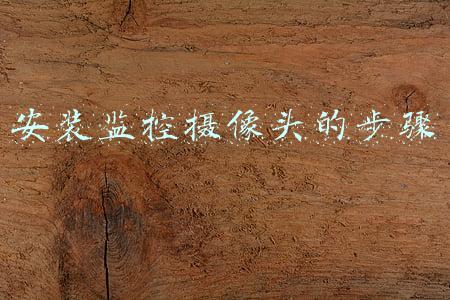 安装监控摄像头的步骤